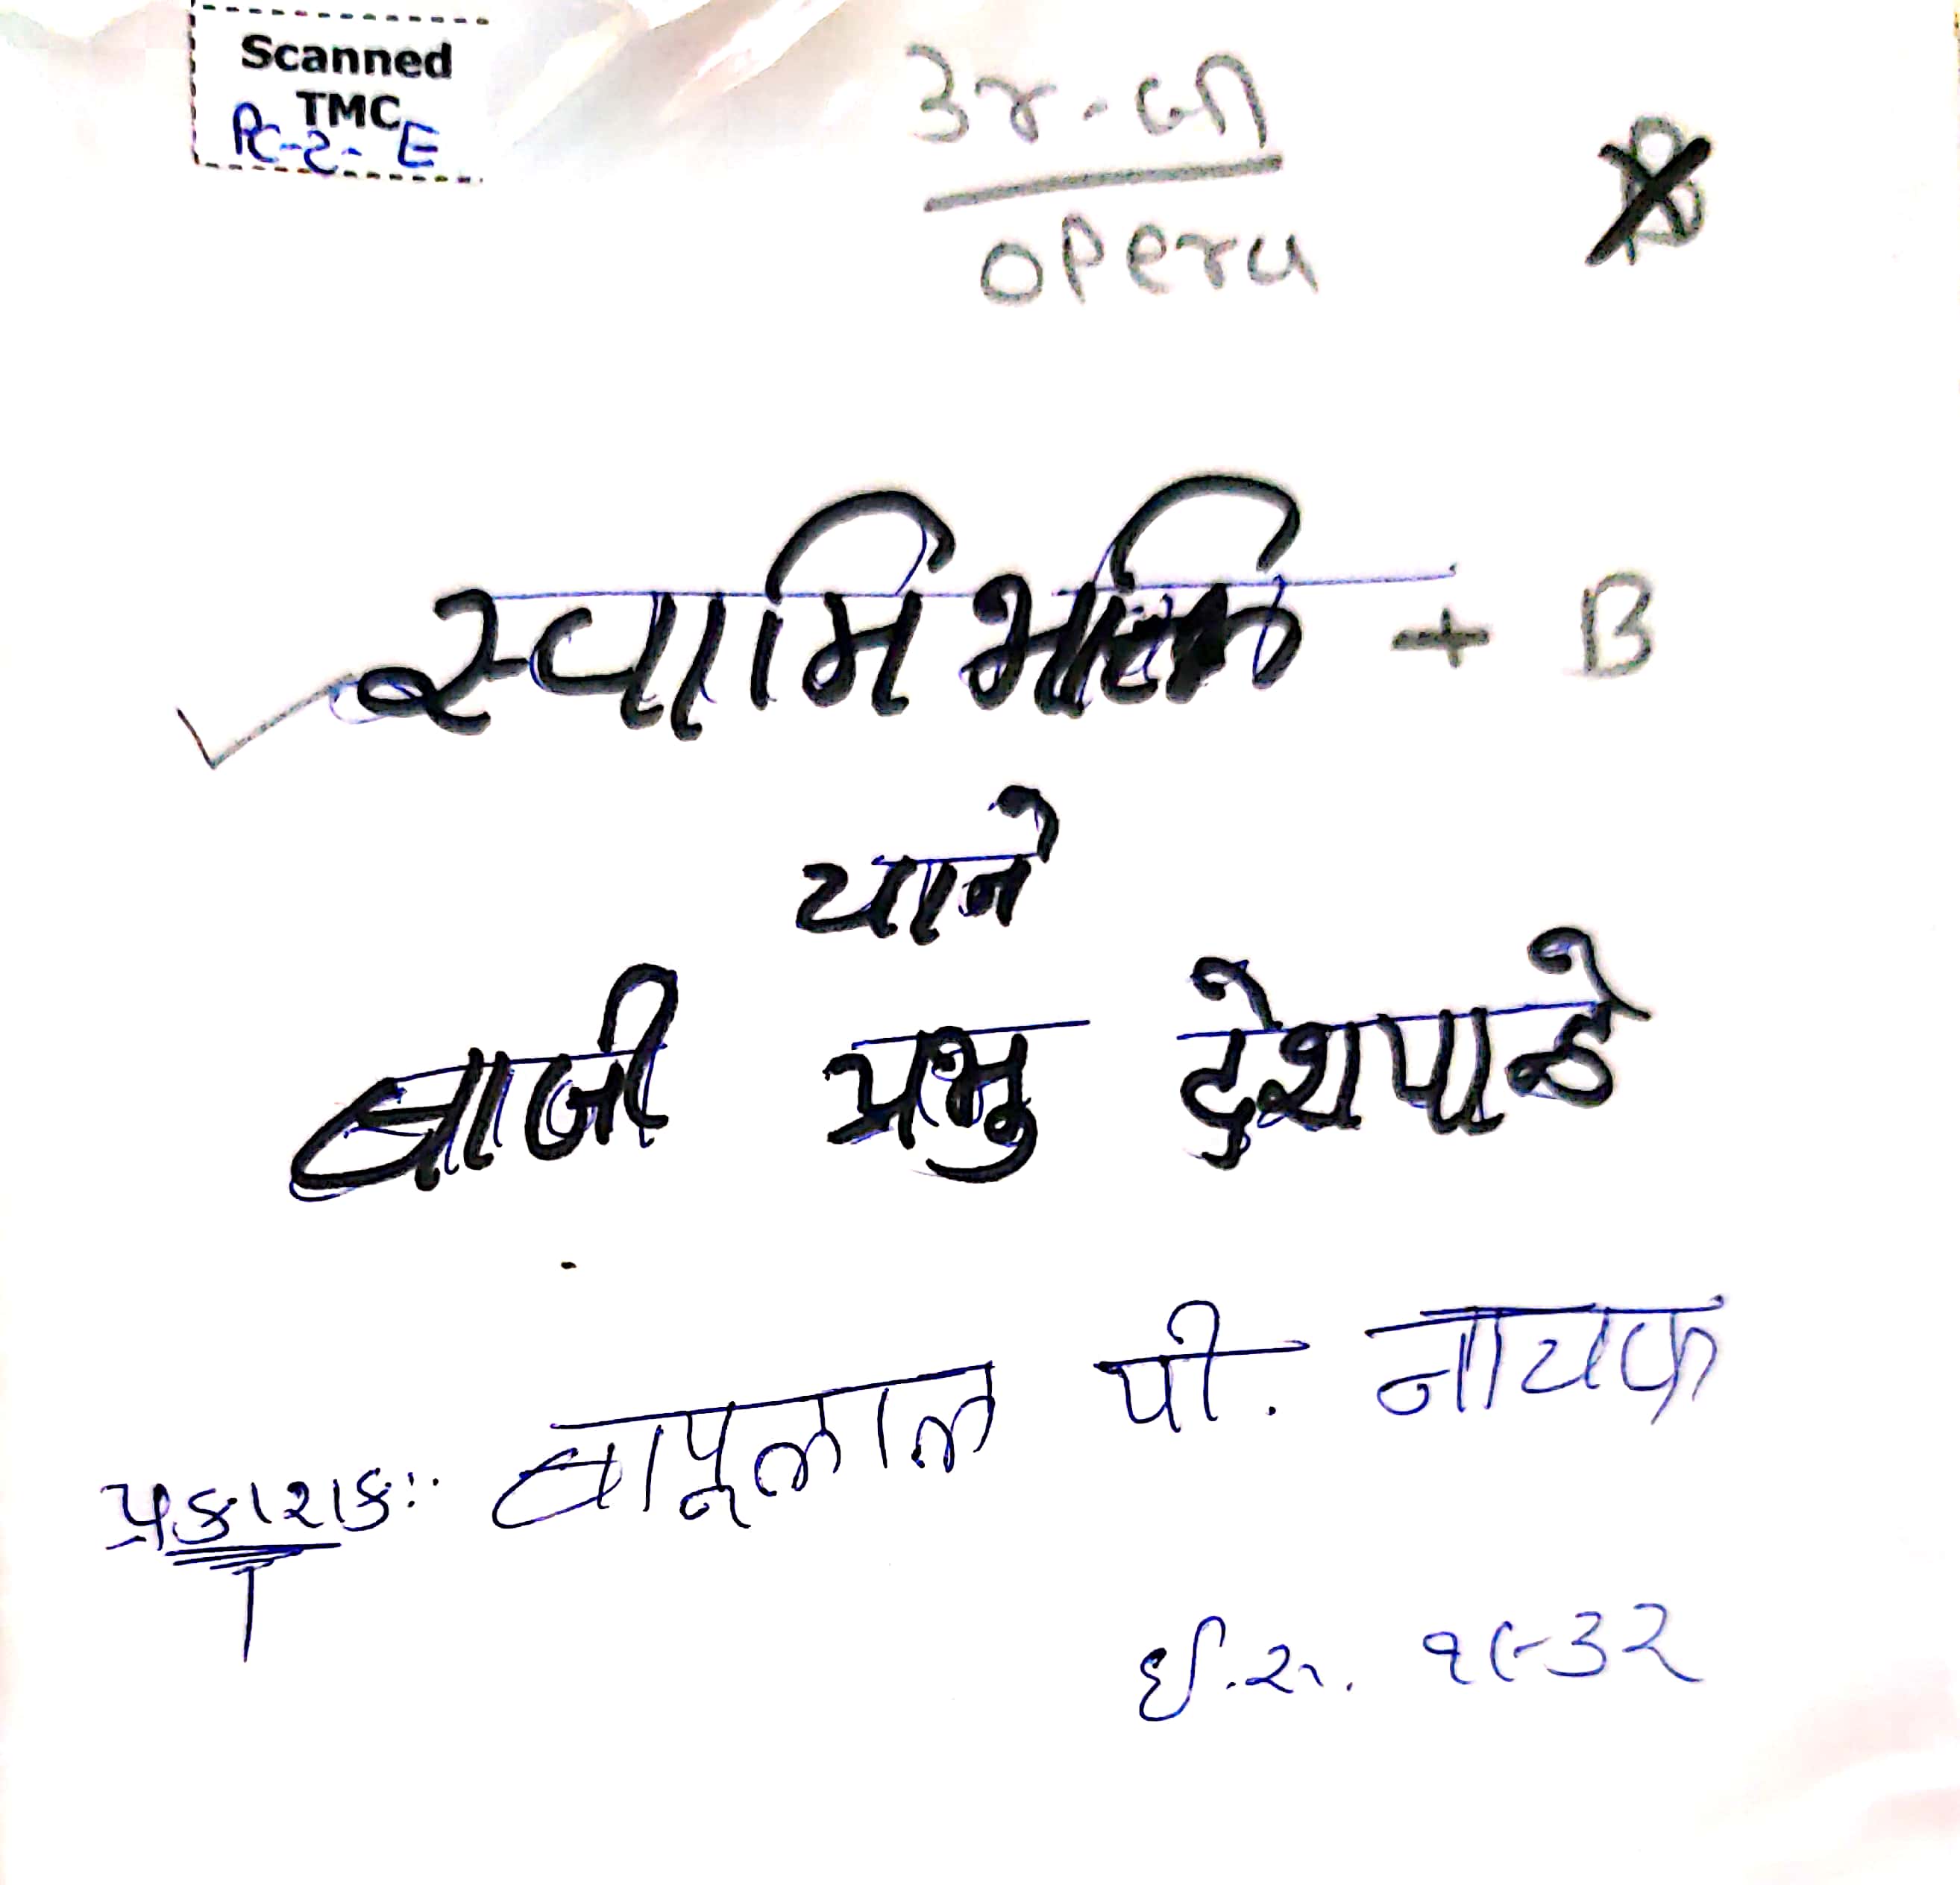 Scanned
TMC
PC-2-E
opera
स्वामि भक्ति + B
याने
बाजी प्रभु देशपान्डे
प्रकाशक:- बापूलाल पी. नायक
ई.स. १९३२